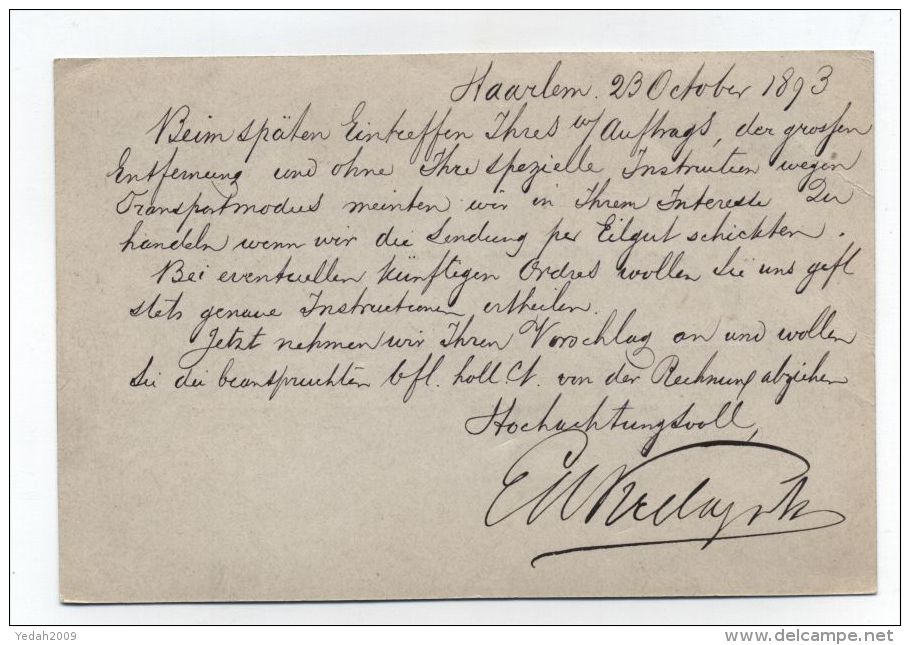 Haarlem. 23 October 1893
Beim späten Eintreffen Ihres w/ Auftrags, der grossen
Entfernung und ohne Ihre spezielle Instruction wegen
Transportmodus meinten wir in Ihrem Interesse zu
handeln wenn wir die Sendung per Eilgut schickten.
Bei eventuellen künftigen Ordres wollen Sie uns gefl
stets genaue Instructionen ertheilen.
Jetzt nehmen wir Ihren Vorschlag an und wollen
Sie die beanspruchten 6 fl. holl. Ct. von der Rechnung abziehen
Hochachtungsvoll,
Yedah2009
www.delcampe.net